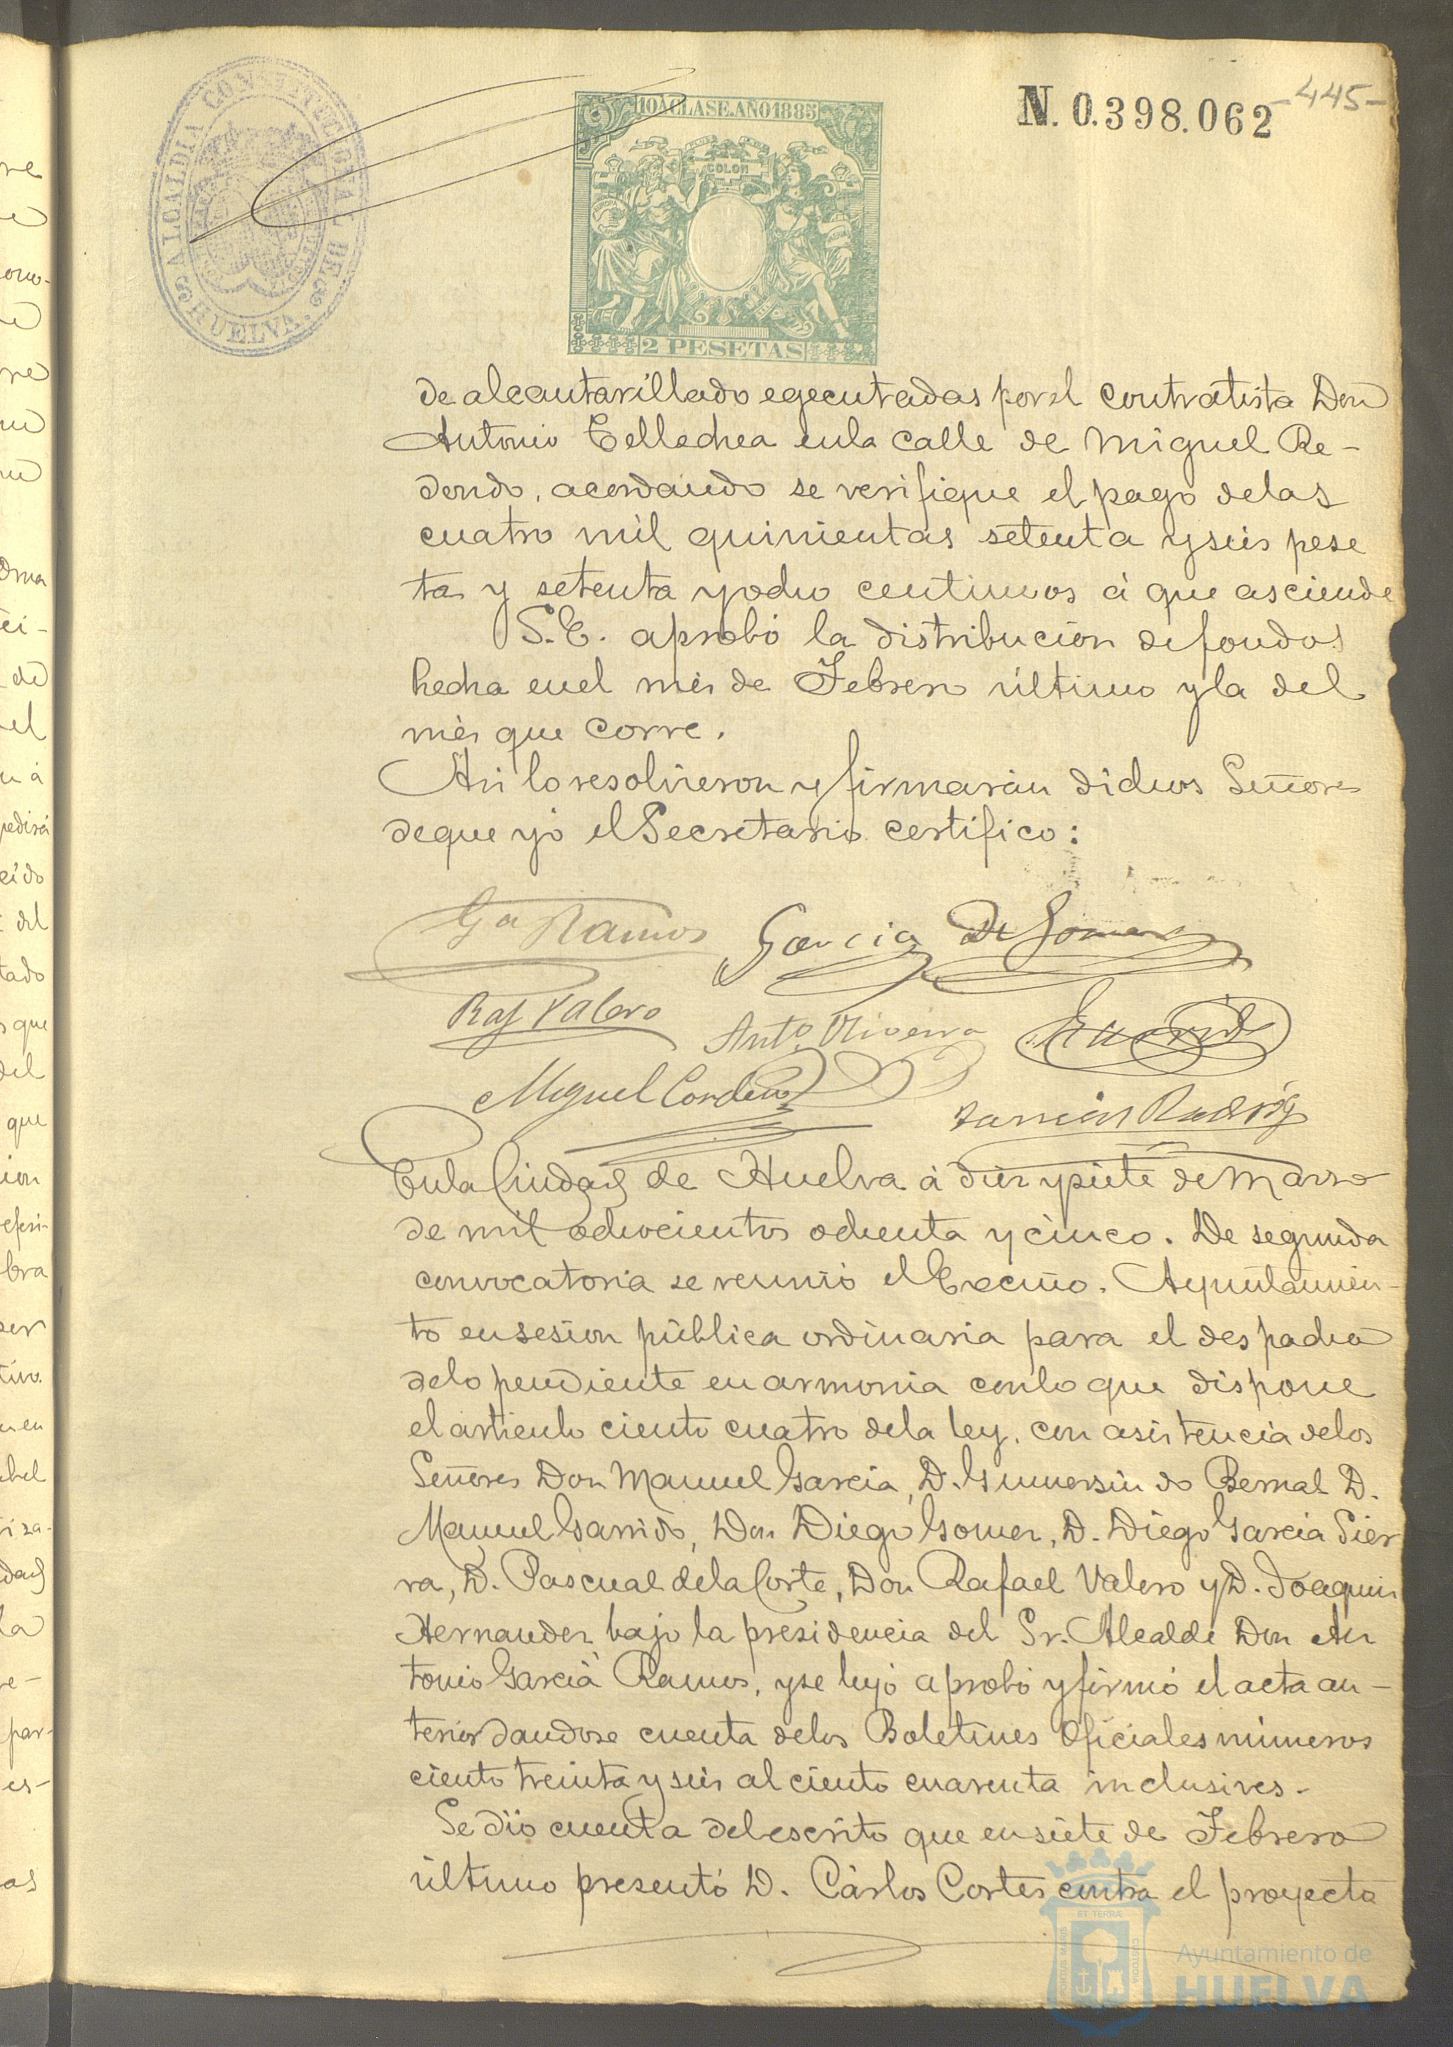 ALCALDIA CONSTITUCIONAL DE HUELVA.
10A CLASE. AÑO 1885
COLON
2 PESETAS
N. 0.398.062
-445-
de alcantarillado egecutadas por el contratista Don
Antonio Tellechea en la calle de Miguel Re-
dondo, acordando se verifique el pago de las
cuatro mil quinientas setenta y seis pese
tas y setenta y ocho centimos á que asciende
S.E. aprobó la distribución de fondos
hecha en el mes de Febrero último y la del
mes que corre.
Asi lo resolvieron y firmarán dichos Señores
de que yó el Secretario certifico:
Ga Ramos Garcia D. Gomez
Raf Valero Anto. Oliveira
Miguel Cordero
En la Ciudad de Huelva á diez y siete de Marzo
de mil ochocientos ochenta y cinco. De segunda
convocatoria se reunió el Excmo. Ayuntamien-
to en sesion pública ordinaria para el despacho
de lo pendiente en armonia con lo que dispone
el articulo ciento cuatro de la ley, con asistencia de los
Señores Don Manuel Garcia, D. Gumersindo Bernal D.
Manuel Garrido, Don Diego Gomez, D. Diego Garcia Sier
ra, D. Pascual de la Corte, Don Rafael Valero y D. Joaquin
Hernandez bajo la presidencia del Sr. Alcalde Don An
tonio Garcia Ramos, y se leyó aprobó y firmó el acta an-
terior dandose cuenta de los Boletines Oficiales números
ciento treinta y seis al ciento cuarenta inclusives.-
Se dió cuenta del escrito que en siete de Febrero
último presentó D. Cárlos Cortes contra el proyecto
Ayuntamiento de
HUELVA